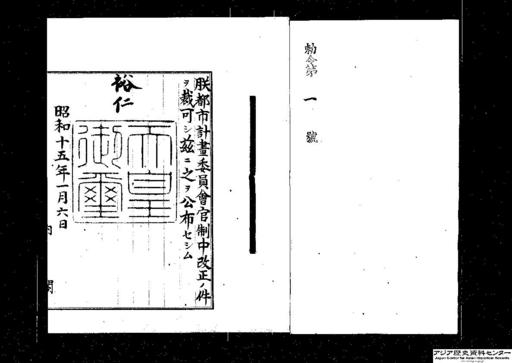 勅令第一號
朕都市計畫委員會官制中改正ノ件
ヲ裁可シ茲ニ之ヲ公布セシム
裕仁
天皇
御璽
昭和十五年一月六日
内閣
アジア歴史資料センター
Japan Center for Asian Historical Records